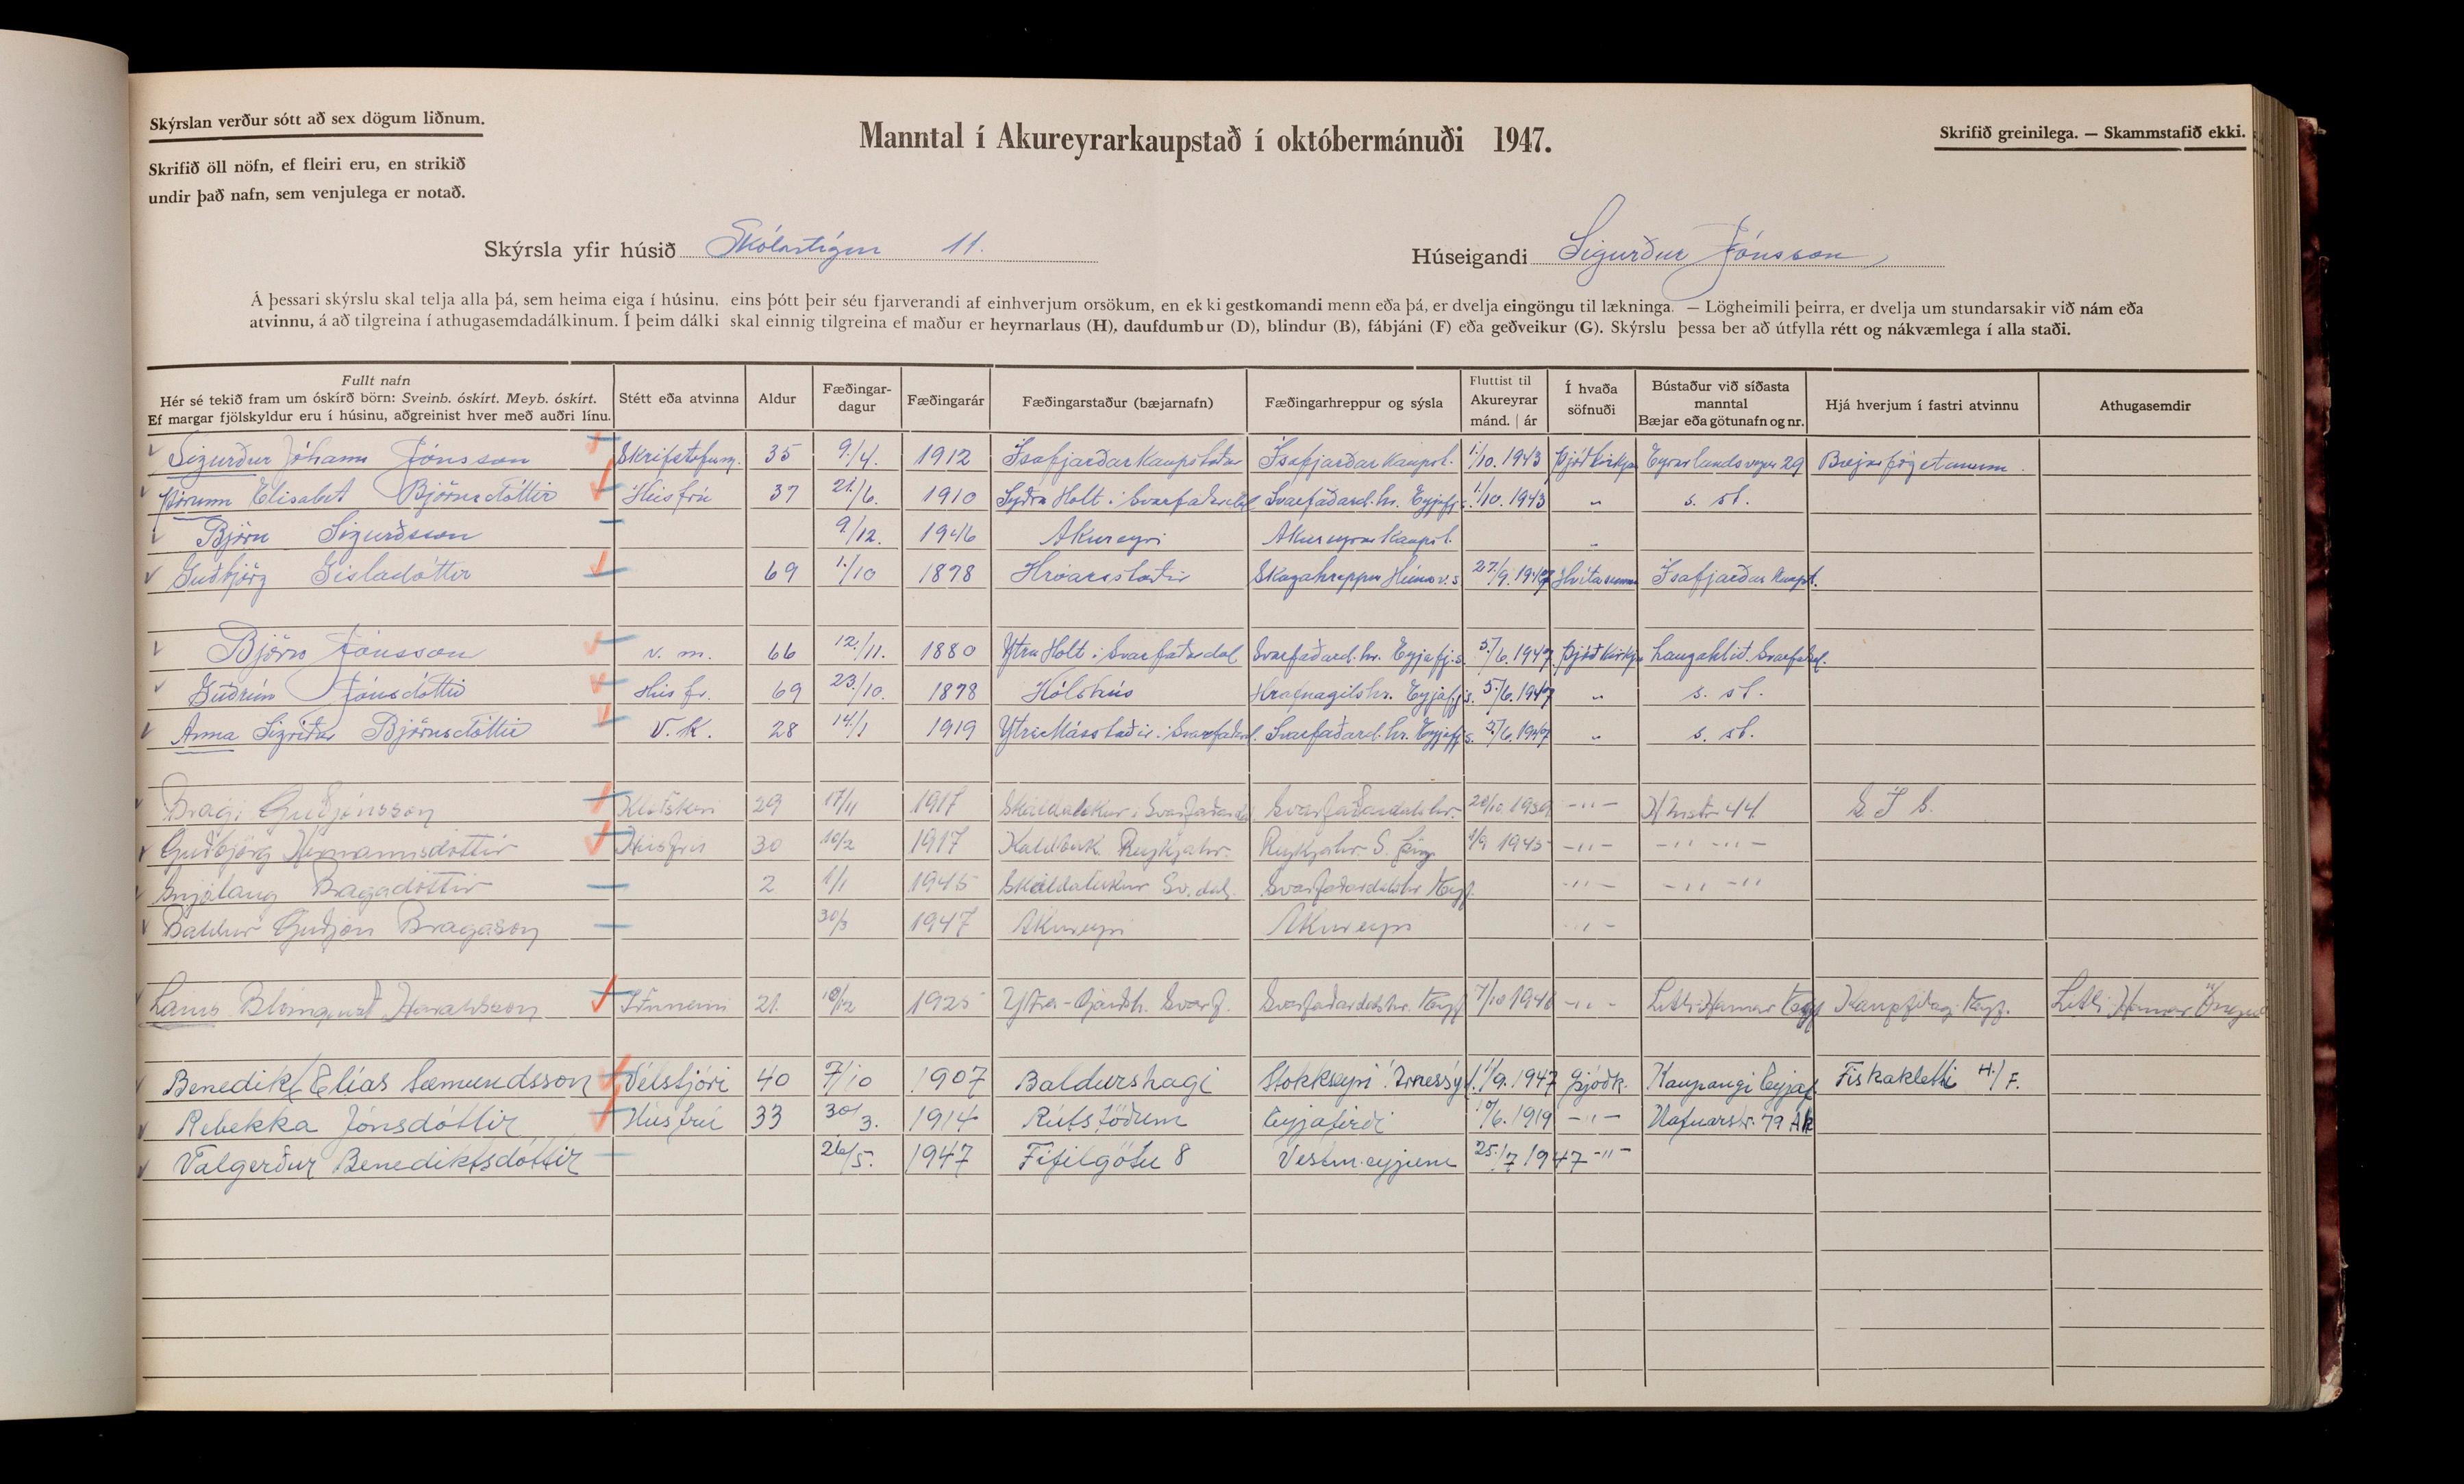 Skýrslan verður sótt að sex dögum liðnum.
Skrifið öll nöfn, ef fleiri eru, en strikið
undir það nafn, sem venjulega er notað.
Manntal í Akureyrarkaupstað í októbermánuði 1947.
Skrifið greinilega. — Skammstafið ekki.
Skýrsla yfir húsið Skólastígur 11.
Húseigandi Sigurður Jónsson
Á þessari skýrslu skal telja alla þá, sem heima eiga í húsinu, eins þótt þeir séu fjarverandi af einhverjum orsökum, en ekki gestkomandi menn eða þá, er dvelja eingöngu til lækninga. — Lögheimili þeirra, er dvelja um stundarsakir við nám eða
atvinnu, á að tilgreina í athugasemdadálkinum. Í þeim dálki skal einnig tilgreina ef maður er heyrnarlaus (H), daufdumbur (D), blindur (B), fábjáni (F) eða geðveikur (G). Skýrslu þessa ber að útfylla rétt og nákvæmlega í alla staði.
Fullt nafn Hér sé tekið fram um óskírð börn: Sveinb. óskírt. Meyb. óskírt. Ef margar fjölskyldur eru í húsinu, aðgreinist hver með auðri línu. Stétt eða atvinna Aldur Fæðingar- dagur Fæðingarár Fæðingarstaður (bæjarnafn) Fæðingarhreppur og sýsla Fluttist til Akureyrar mánd. | ár Í hvaða söfnuði Bústaður við síðasta manntal Bæjar eða götunafn og nr. Hjá hverjum í fastri atvinnu Athugasemdir
Sigurður Jóhann Jónsson Skrifstofum. 35 9./4. 1912 Ísafjarðarkaupstaður Ísafjarðarkaupst. 1./10. 1943 Þjóðkirkju Eyrarlandsvegur 29 Bæjarfógetanum.
Þórunn Elísabet Björnsdóttir Húsfrú 37 21./6. 1910 Syðra Holt í Svarfaðardal Svarfaðard.hr. Eyjafj.s. 1./10. 1943 " s. st.
Björn Sigurðsson 9/12. 1946 Akureyri Akureyrarkaupst. "
Guðbjörg Gísladóttir 69 1./10 1878 Hróarsstaðir Skagahreppur Húnav.s 27./9. 1947 Hvítasunnu Ísafjarðarkaupst.
Björn Jónsson v. m. 66 12./11. 1880 Ytra Holt í Svarfaðardal Svarfaðard.hr. Eyjafj.s. 5./6. 1947 Þjóðkirkju Laugahlíð. Svarfaðd.
Guðrún Jónsdóttir Húsfr. 69 23./10. 1878 Hólshús Hrafnagilshr. Eyjafj.s. 5./6. 1947 " s. st.
Anna Sigríður Björnsdóttir V. K. 28 14./1 1919 Ytri Másstaðir í Svarfaðard. Svarfaðard.hr. Eyjafj.s. 5./6. 1947 " s. st.
Bragi Guðjónsson Klæðskeri 29 17/11 1917 Skáldalækur í Svarfaðardal Svarfaðardalshr. 20/10 1939 -"- Hfnstr 44 S Í S.
Guðbjörg Hermannsdóttir Húsfrú 30 10/2 1917 Reykjahr. Reykjahr. S. Þing 1/9 1945 -"- -"- -"-
Snjólaug Bragadóttir 2 1/1 1945 Skáldalækur Sv.dal. Svarfaðardalshr Eyf. -"- -"- -"
Baldur Guðjón Bragason 30/3 1947 Akureyri Akureyri -"-
Haraldsson Iðnnemi 21. 10/12 1925 Ytra-Garðsh. Svarf. Svarfaðardalshr. Eyf 7/10 1946 -"- Litli-Hamar Eyf Kaupfélag Eyf. Litli Hamar
Benedikt Elías Sæmundsson Vélstjóri 40 7/10 1907 Baldurshagi Stokkseyri Árnessýsl. 1/9. 1947 Þjóðk. Kaupangi Eyjaf. Fiskakletti H./F.
Rebekka Jónsdóttir Húsfrú 33 30/3. 1914 Rútsstöðum Eyjafirði 10/6. 1919 -"- Hafnarstr. 79 Ak
Valgerður Benediktsdóttir 26/5. 1947 Fífilgötu 8 Vestm.eyjum 25./7 1947 -"-